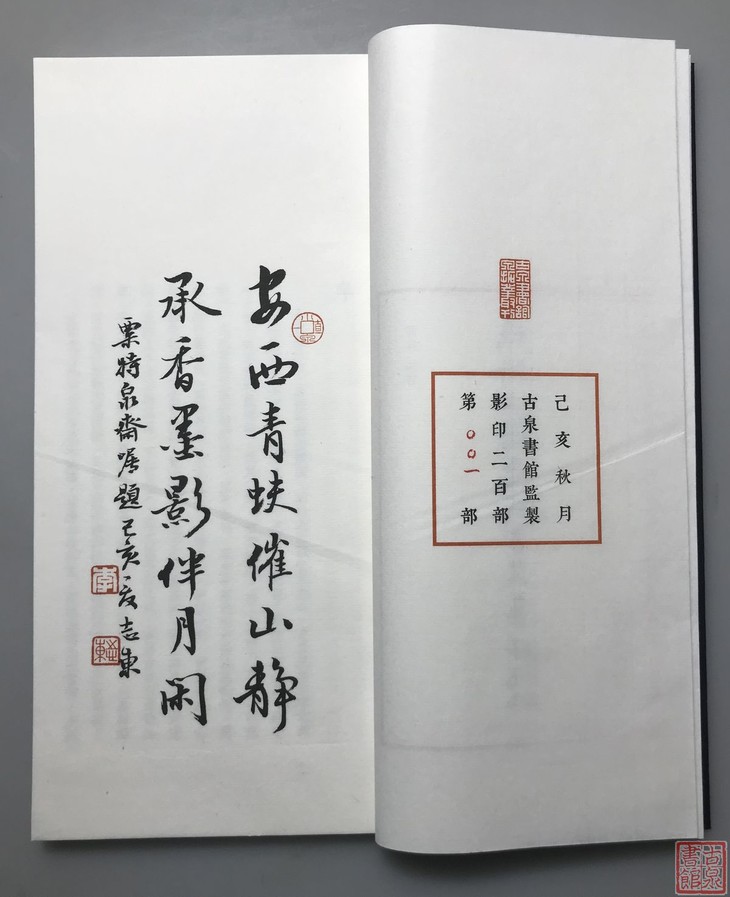 己亥秋月
古泉書館監製
影印二百部
第〇〇一部
安西青蚨催山靜
承香墨影伴月閑
粟特泉齋囑題己亥夏志東
李
志東
古泉書館